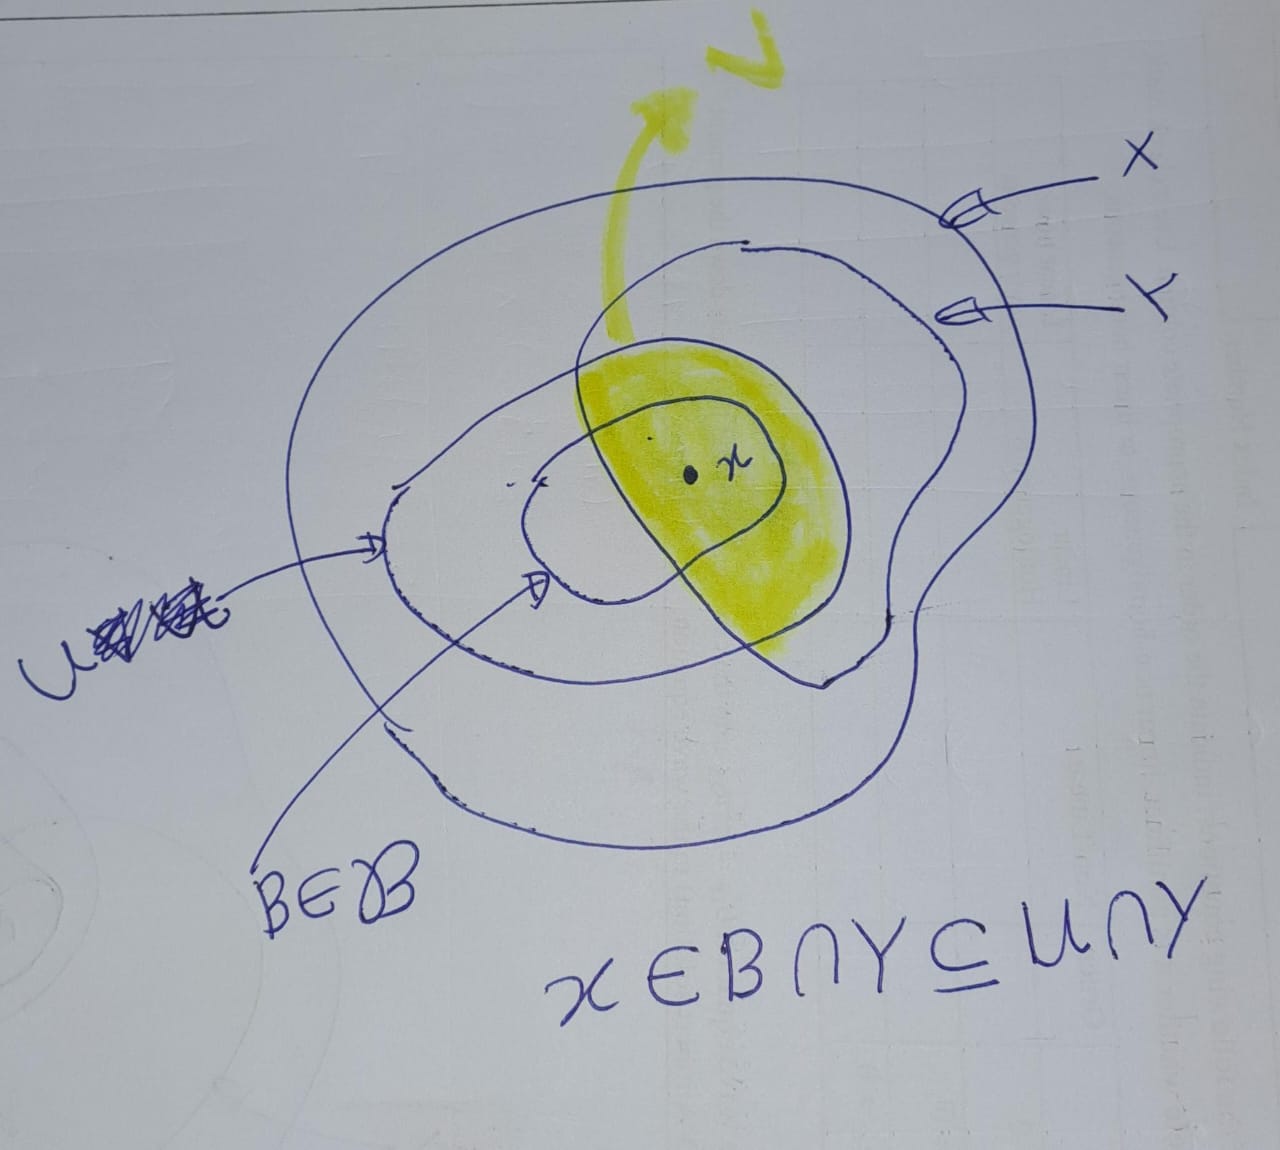 V
X
Y
x
U
B∈ℬ
x ∈ B ∩ Y ⊆ U ∩ Y